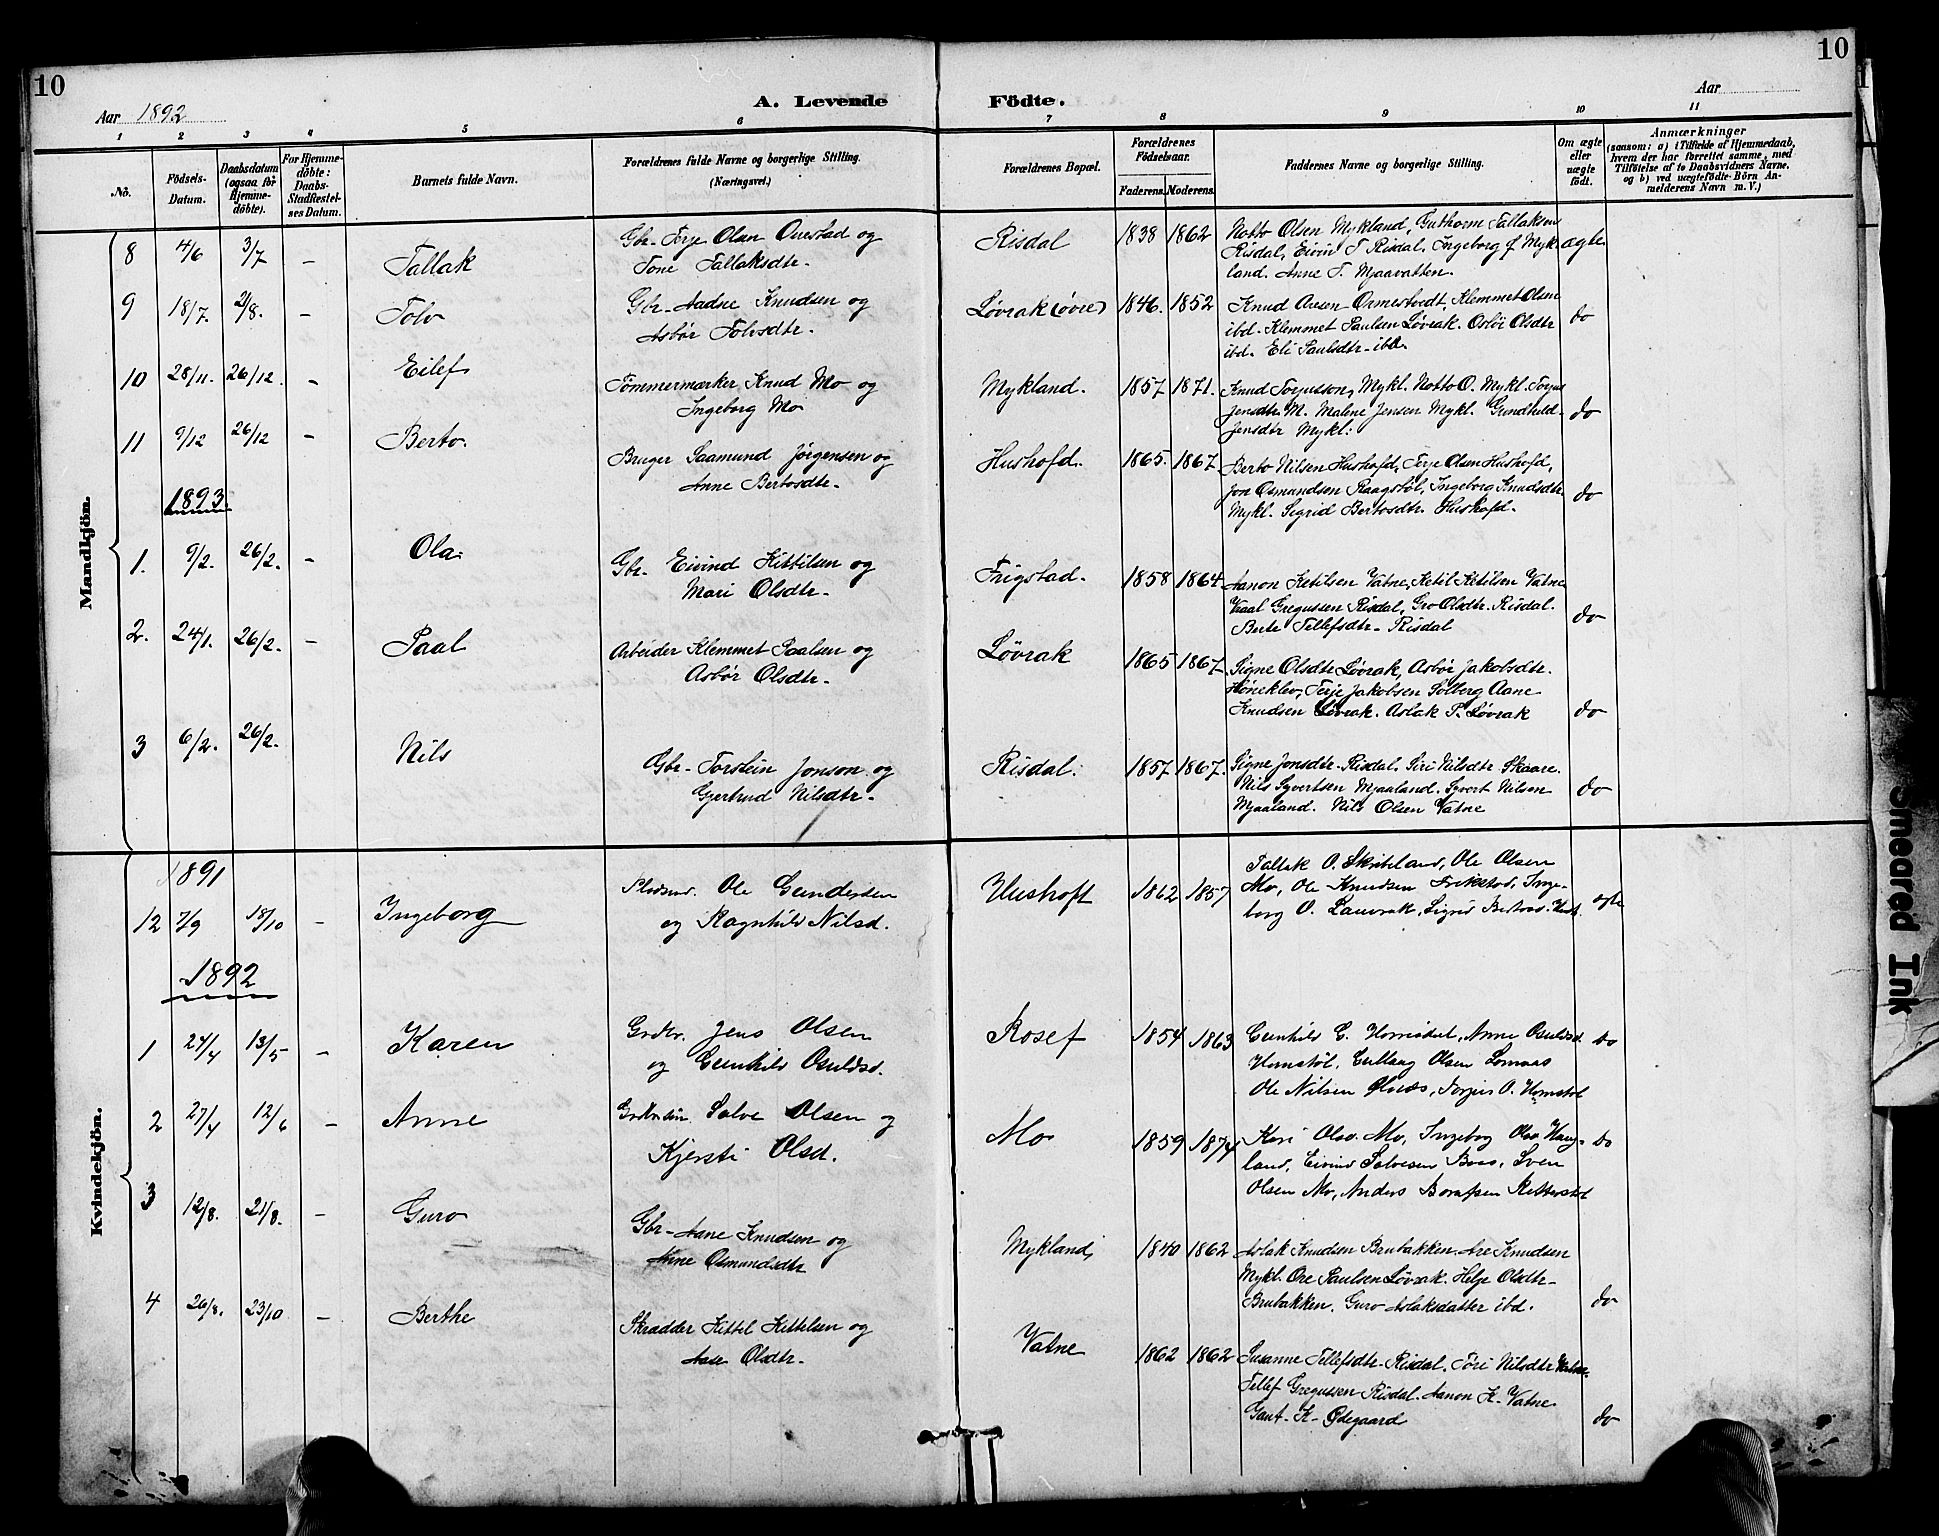 10
10
Aar 1892
A. Levende Födte.
Aar
1 2 3 4 5 6 7 8 9 10 11
No.
Födsels-Datum.
Daabsdatum (ogsaa før Hjemme-döbte).
For Hjemme-döbte: Daabs-Stadfestel-ses Datum.
Barnets fulde Navn.
Forældrenes fulde Navne og borgerlige Stilling.
(Næringsvei.)
Forældrenes Bopæl.
Forældrenes Födselsaar.
Faderens. Moderens.
Faddernes Navne og borgerlige Stilling.
Om ægte eller uægte födt.
Anmærkninger
(saasom: a) i Tilfælde af Hjemmedaab, hvem der har forrettet samme, med Tilföielse af to Daabsvidners Navne, og b) ved uægtefödte Börn An-melderens Navn m. V.)
Mandkjön.
8 4/6 3/7 – Tallak
Gbr. Torje Olsen Ouestad og
Tone Tallaksdtr.
Risdal 1838 1862
Notto Olsen Mykland, Guthorm Tallaksen
Risdal, Eivin T. Risdal, Ingeborg J. Myk-
land. Anne T. Maavatten.
ægte
9 18/7. 21/8. – Tolv
Gbr. Aadne Knudsen og
Asbør Tolvsdtr.
Løvrak (øvre) 1846. 1852
Knud Aresen Ormestvedt. Klemmet Olsen
ibd. Klemmet Paulsen Løvrak. Oslöi Olsdtr
ibd. Eli Paulsdtr. ibd.
do
10 28/11. 26/12. – Eilef
Tømmermærker Knud Mo og
Ingeborg Mo
Mykland. 1857 1871.
Knud Torjussøn, Mykl. Notto O. Mykl. Torjus
Jensdtr M. Malene Jensen Mykl. Gundheld
Jensdtr Mykl:
do
11 9/12 26/12 – Berto.
Bruger Saamund Jørgensen og
Anne Bertosdtr.
Hushofd. 1865. 1867.
Berto Nilsen Hushofd, Terje Olsen Hushofd,
Jon Osmundsen Raagstøl, Ingeborg Knudsdtr.
Mykl. Sigrid Bertosdtr. Hushofd.
do
1893.
1. 9/2. 26/2. – Ola
Gbr. Eivind Kittilsen og
Mari Olsdtr.
Frigstad. 1858 1864.
Aanon Ketilsen Vatne, Ketil Ketilsen Vatne
Gregussen Risdal, Gro Olsdtr. Risdal.
Berte Tellefsdtr. Risdal
do
2. 24/1. 26/2. – Paal
Arbeider Klemmet Paalsen og
Asbör Olsdtr.
Løvrak 1865 1867.
Signe Olsdtr Løvrak, Asbør Jakobsdtr.
Høneklev, Terje Jakobsen Solberg Aane
Knudsen Løvrak. Aslak P. Løvrak
do
3 6/2. 26/2. Nils
Gbr. Torstein Jonson og
Gjertrud Nilsdtr.
Risdal. 1857 1867.
Signe Jonsdtr. Risdal. Siri Nilsdtr. Skaare.
Nils Syvertsen Mjaaland. Syvert Nilsen
Mjaaland. Nils Olsen Vatne
do
Kvindekjön.
1891
12 7/9 18/10 – Ingeborg
Pladsmd. Ole Gundersen
og Ragnhild Nilsd.
Hushoft 1862 1857
Tallak O. Skribeland, Ole Olsen
Mo, Ole Knudsen Frikstad, Inge-
borg O. Lauvrak, Sigrid Bertosd. Husb.
ægte
1892
1 24/4 13/5 – Karen
Grdbr. Jens Olsen
og Gunhild Osuldsd.
Rosef 1854 1863
Gunhild G. Homstøl, Anne Osuldsd
Homstøl, Gullaug Olsen Lomaas
Ole Nilsen, Torjus O. Homstøl
do
2 27/4 12/6 – Anne
Salve Olsen og
Kjersti Olsd.
Mo 1859 1874
Kari Olsd. Mo, Ingebog Olsd. Haug-
land, Eivind Salvesen Boas, Sven
Olsen Mo, Anders Ketterstøl
do
3 12/8. 21/8. – Guro
Gbr. Aane Knudsen og
Anne Osmundsdtr
Mykland 1840 1862
Aslak Knudsen Brubakken. Are Knudsen
Mykl. Ore Paulsen Løvrak. Helje Olsdtr.
Brubakken. Guro Aslaksdatter ibd.
do
4 26/8. 23/10 – Berthe
Skrædder Kittel Kittelsen og
Aase Olsdtr.
Vatne 1862 1862
Susanne Tellefsdtr. Risdal. Töri Nilsdtr Vatne.
Tellef Gregussen Risdal. Aanon K. Vatne
Gaut. K. Ødegaard
do
Smeared Ink